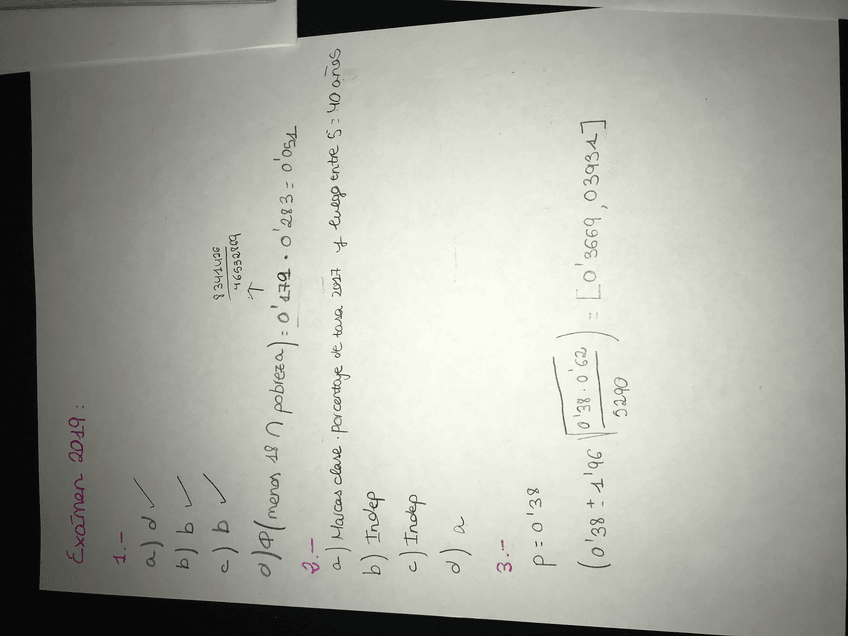 Exámen 2019:
1.-
a) d ✓
b) b ✓
c) b ✓
8341426
46532869
↑
d) P(menos 18 ∩ pobreza) = 0'179 · 0'283 = 0'051
2.-
a) Marcas clase · porcentaje de tasa 2017 y luego entre 5 = 40 años
b) Indep
c) Indep
d) a
3.-
p = 0'38
(0'38 ± 1'96 √0'38 · 0'62 / 5290) = [0'3669, 03931]